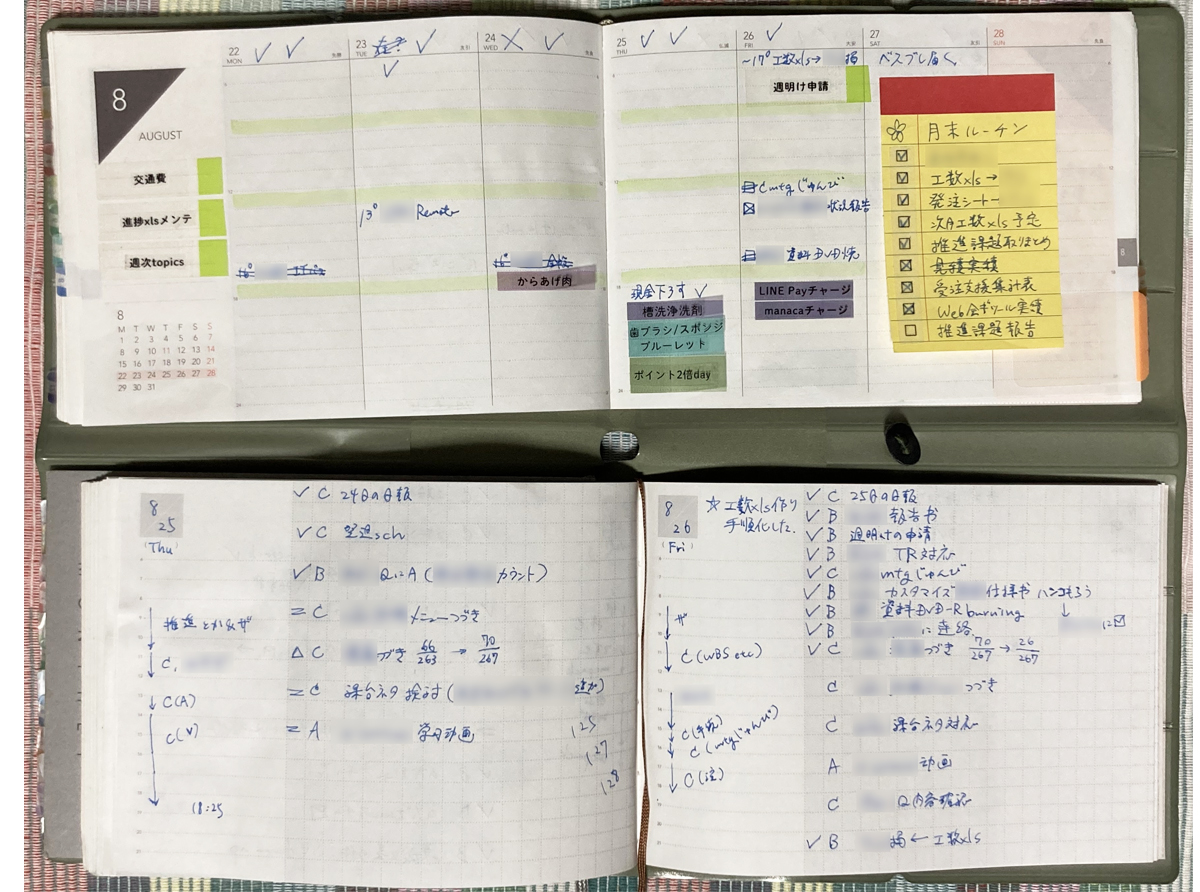 8
AUGUST
交通費
進捗xlsメンテ
週次topics
8
M T W T F S S
1 2 3 4 5 6 7
8 9 10 11 12 13 14
15 16 17 18 19 20 21
22 23 24 25 26 27 28
29 30 31
22
MON
23
TUE
友引
13° Remote
24
WED
からあげ肉
25
THU
現金下ろす ✓
槽洗浄洗剤
歯ブラシ/スポンジ
ブルーレット
ポイント2倍day
26
FRI
大安
~17° 工数xls→
週明け申請
mtgじゅんび
状況報告
資料DVD焼
LINE Payチャージ
manacaチャージ
27
SAT
28
SUN
月末ルーチン
☑ 工数xls→
☑ 発注シート
☑ 次月工数xls予定
☑ 推進課題取りまとめ
☒ 見積実績
☒ 受注支援集計表
☒ Web会ギツール実績
☐ 推進課題報告
8
8
25
Thu
✓ C 24日の日報
✓ C sch
✓ B QにA ( カウント)
= C メニューつづき
△ C つづき 66/263 → 70/267
= C 課台ネタ検討 ( 追加)
= A 学習動画
C(A)
18:25
125
127
128
8
26
Fri
☆工数xls作り
手順化した.
✓ C 25日の日報
✓ B 報告書
✓ B 週明けの申請
✓ B TR対応
✓ C mtgじゅんび
✓ B カスタマイズ 仕様書 ハンコもらう
✓ B 資料DVD-R burning
✓ B に連絡 に☑
✓ C つづき 70/267 → 26/267
C つづき
C 課台ネタ対応
A 動画
C Q内容確認
✓ B ← 工数xls
C(WBS etc)
C(mtgじゅんび)